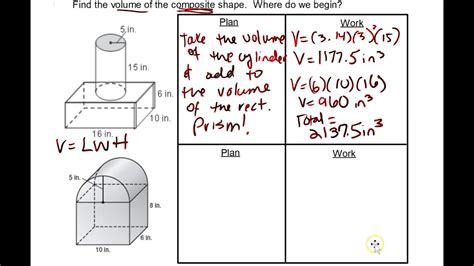 Find the volume of the composite shape. Where do we begin?
Plan
Work
5 in.
15 in.
6 in.
10 in.
16 in.
V = LWH
Take the volume
of the cylinder
& add to
the volume
of the rect.
Prism!
V = (3.14)(5)²(15)
V = 1177.5 in³
V = (6)(10)(16)
V = 960 in³
Total =
2137.5 in³
Plan
Work
5 in.
8 in.
6 in.
10 in.